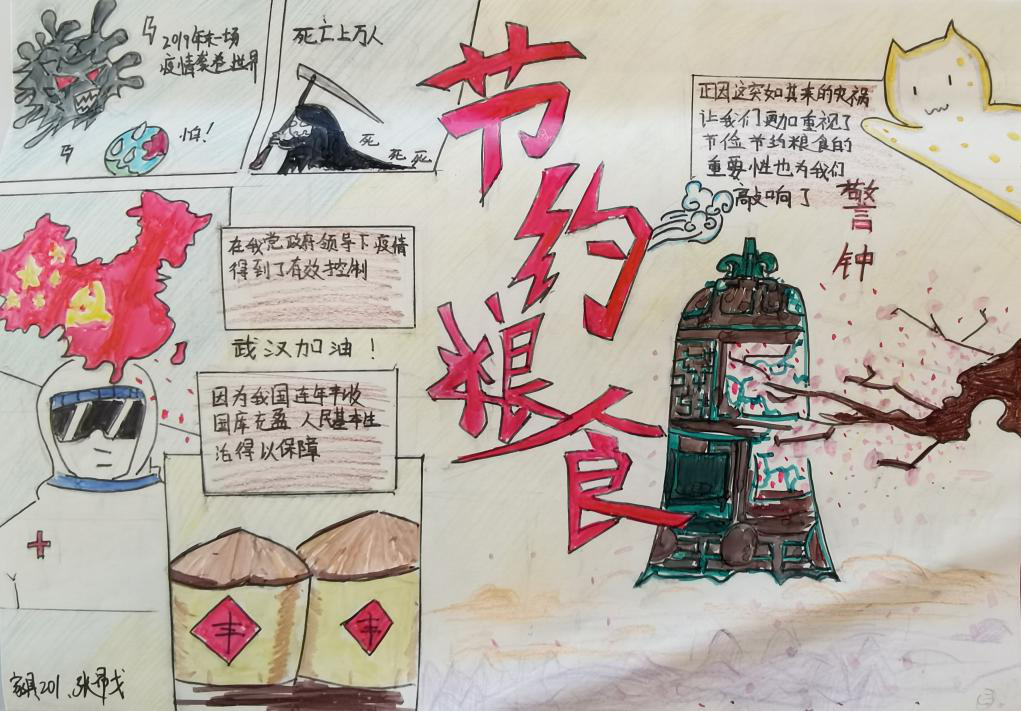 2019年末一场
疫情袭卷世界
怕!
死亡上万人
死
死
死
节约粮食
正因这突如其来的灾祸
让我们更加重视了
节俭节约粮食的
重要性也为我们
敲响了
警钟
在我党政府领导下疫情
得到了有效控制
武汉加油!
因为我国连年丰收
国库充盈 人民基本生
活得以保障
丰
丰
家具201